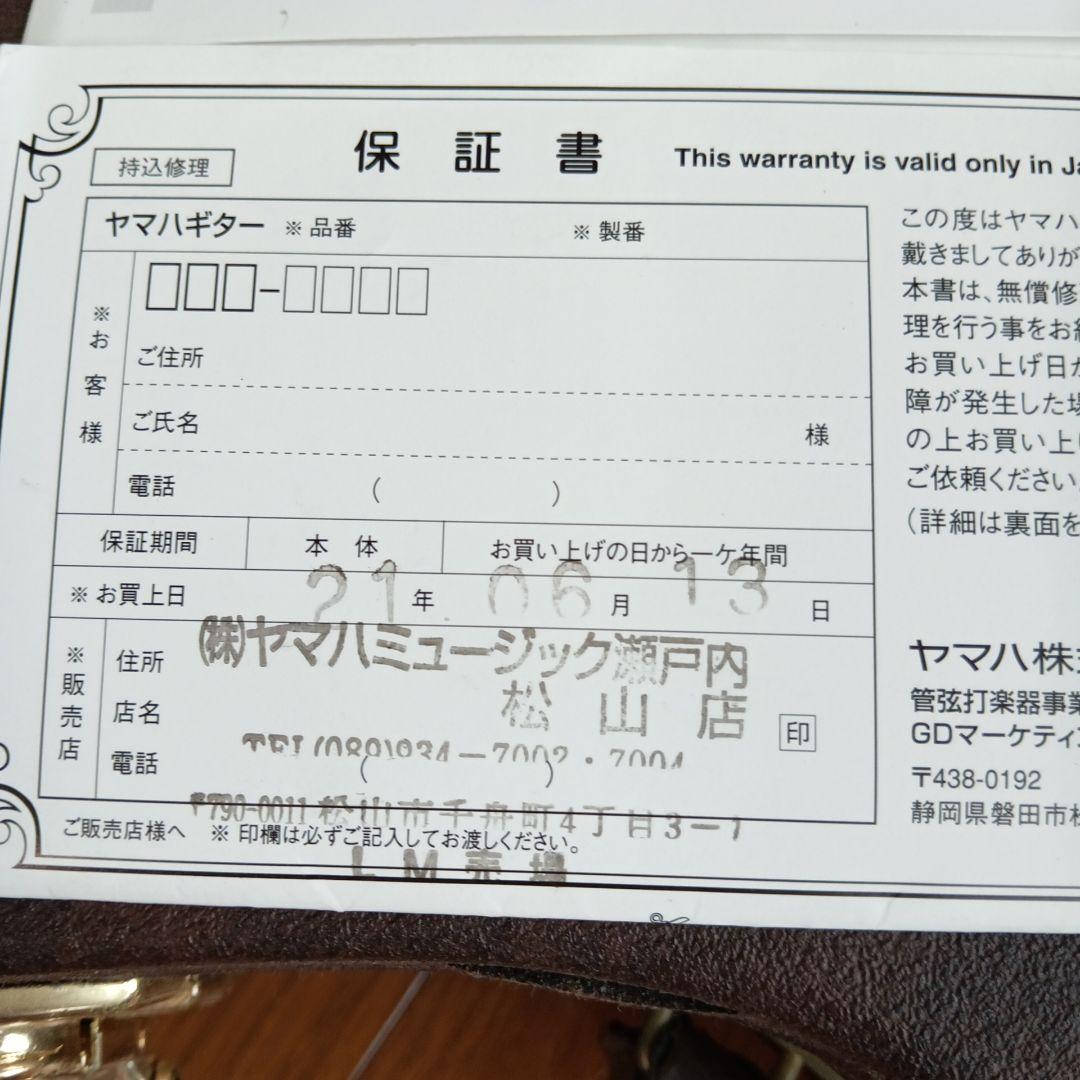 持込修理
保証書
This warranty is valid only in Ja
ヤマハギター ※品番 ※製番
※お客様
ご住所
ご氏名 様
電話 ( )
保証期間 本体 お買い上げの日から一ケ年間
※お買上日 21年 06月 13日
※販売店
住所
店名
電話 ( )
㈱ヤマハミュージック瀬戸内
松山店
印
TEL(089)934-7003・7004
〒790-0011 松山市千舟町4丁目3-1
LM売場
ご販売店様へ ※印欄は必ずご記入してお渡しください。
この度はヤマハ
戴きましてありが
本書は、無償修
理を行う事をお
お買い上げ日か
障が発生した場
の上お買い上げ
ご依頼ください
(詳細は裏面を
ヤマハ株式
管弦打楽器事業
GDマーケティン
〒438-0192
静岡県磐田市松